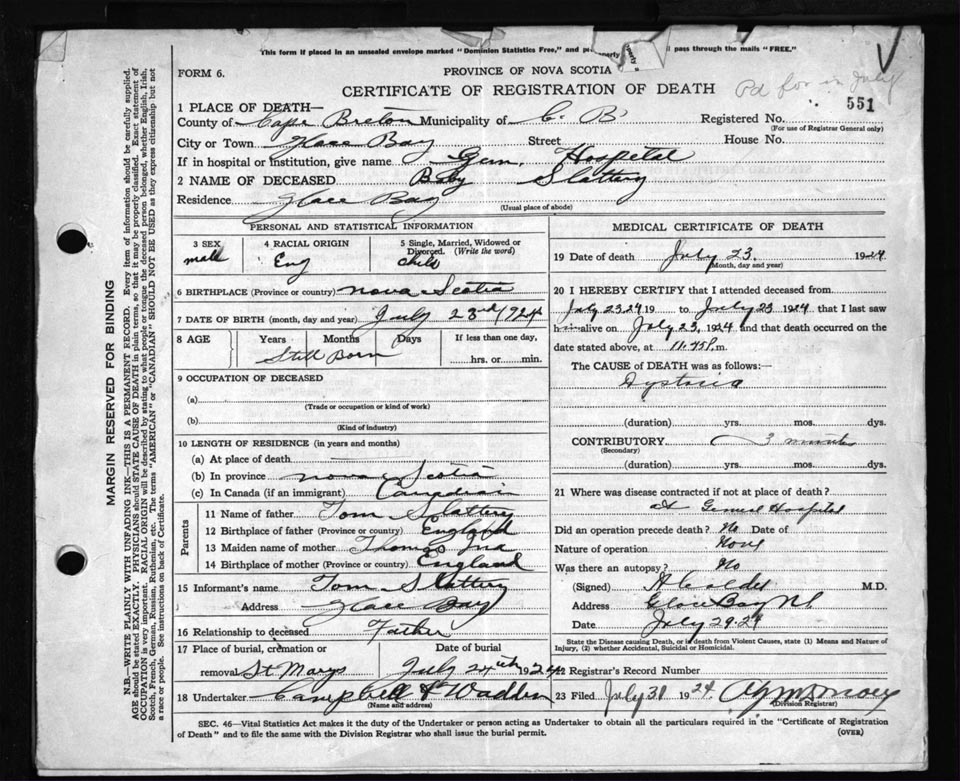 This form if placed in an unsealed envelope marked "Dominion Statistics Free," and pass through the mails "FREE."
FORM 6.
PROVINCE OF NOVA SCOTIA
CERTIFICATE OF REGISTRATION OF DEATH
551
1 PLACE OF DEATH—
County of Cape Breton Municipality of C. B. Registered No.
(For use of Registrar General only)
City or Town Glace Bay Street House No.
If in hospital or institution, give name Gen. Hospital
2 NAME OF DECEASED Baby Slattery
Residence Glace Bay
(Usual place of abode)
PERSONAL AND STATISTICAL INFORMATION
3 SEX 4 RACIAL ORIGIN 5 Single, Married, Widowed or Divorced. (Write the word)
male Eng child
6 BIRTHPLACE (Province or country) Nova Scotia
7 DATE OF BIRTH (month, day and year) July 23rd 1924
8 AGE Years Months Days If less than one day,
Still Born hrs. or min.
9 OCCUPATION OF DECEASED
(a)
(Trade or occupation or kind of work)
(b)
(Kind of industry)
10 LENGTH OF RESIDENCE (in years and months)
(a) At place of death
(b) In province Nova Scotia
(c) In Canada (if an immigrant) Canadian
Parents
11 Name of father Tom Slattery
12 Birthplace of father (Province or country) England
13 Maiden name of mother Thomas
14 Birthplace of mother (Province or country) England
15 Informant's name Tom Slattery
Address Glace Bay
16 Relationship to deceased Father
17 Place of burial, cremation or Date of burial
removal St Marys July 24th 1924
18 Undertaker Campbell & Wadden
(Name and address)
MEDICAL CERTIFICATE OF DEATH
19 Date of death July 23 1924
(Month, day and year)
20 I HEREBY CERTIFY that I attended deceased from
July 23 24 19 to July 23 1924 that I last saw
h alive on July 23, 1924 and that death occurred on
date stated above, at 11.45 P.m.
The CAUSE of DEATH was as follows:—
(duration) yrs. mos. dys.
CONTRIBUTORY 3 minutes
(Secondary)
(duration) yrs. mos. dys.
21 Where was disease contracted if not at place of death?
At General Hospital
Did an operation precede death? No Date of
Nature of operation None
Was there an autopsy? No
(Signed) M.D.
Address Glace Bay N.S.
Date July 29. 24
State the Disease causing Death, or is death from Violent Causes, state (1) Means and Nature of Injury, (2) whether Accidental, Suicidal or Homicidal.
22 Registrar's Record Number
23 Filed July 31 1924
(Division Registrar)
SEC. 46—Vital Statistics Act makes it the duty of the Undertaker or person acting as Undertaker to obtain all the particulars required in the "Certificate of Registration
of Death" and to file the same with the Division Registrar who shall issue the burial permit. (OVER)
MARGIN RESERVED FOR BINDING
N.B.—WRITE PLAINLY WITH UNFADING INK—THIS IS A PERMANENT RECORD. Every item of information should be carefully supplied.
AGE should be stated EXACTLY. PHYSICIANS should STATE CAUSE OF DEATH in plain terms, so that it may be properly classified. Exact statement of
OCCUPATION is very important. RACIAL ORIGIN will be described by stating to what people or tongue the deceased person belonged, whether English, Irish,
Scotch, French, German, Russian, Ruthenian, etc. The terms "AMERICAN" or "CANADIAN" SHOULD NOT BE USED as they express citizenship but not
a race or people. See instructions on back of Certificate.